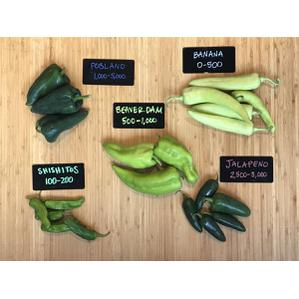 POBLANO
1,000-5,000
BANANA
0-500
BEAVER DAM
500-1,000
SHISHITOS
100-200
JALAPENO
2,500-8,000